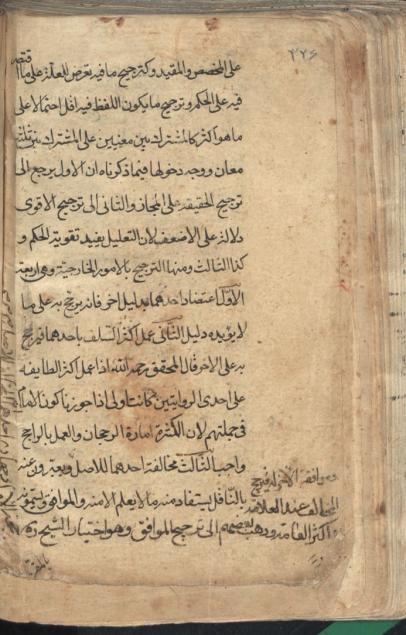 ٣٢٦
على المخصص والمقيد وكترجيح ما فيه تعرض للعلة على ما اقتصر
فيه على الحكم وترجيح ما يكون اللفظ فيه اقل احتمالا على
ما هو اكثر كالمشترك بين معنيين على المشترك بين ثلثة
معان ووجه دخولها فيما ذكرناه ان الاول يرجع الى
ترجيح الحقيقة على المجاز والثانى الى ترجيح الاقوى
دلالة على الاضعف لان التعليل يفيد تقوية الحكم و
كذا الثالث ومنها الترجيح بالامور الخارجية وهى اربعة
الاول اعتضاد احدهما بدليل اخر فانه يرجح به على ما
لا يؤيده دليل الثانى عمل اكثر السلف باحدهما فيرجح
به على الاخر قال المحقق رحمه الله اذا عمل اكثر الطايفة
على احدى الروايتين كانت اولى اذا جوزنا كون الامام
فى جملتهم لان الكثرة امارة الرجحان والعمل بالراجح
واجب الثالث مخالفة احدهما للاصل ويعبرون عنه
بالناقل يستفاد منه ما لا يعلم الا منه والموافق
الى ترجيح الموافق وهو اختيار الشيخ ره
وموافقة الاخر له فيرجح
المخالف عند العلامة
واكثر العامة وذهب بعضهم